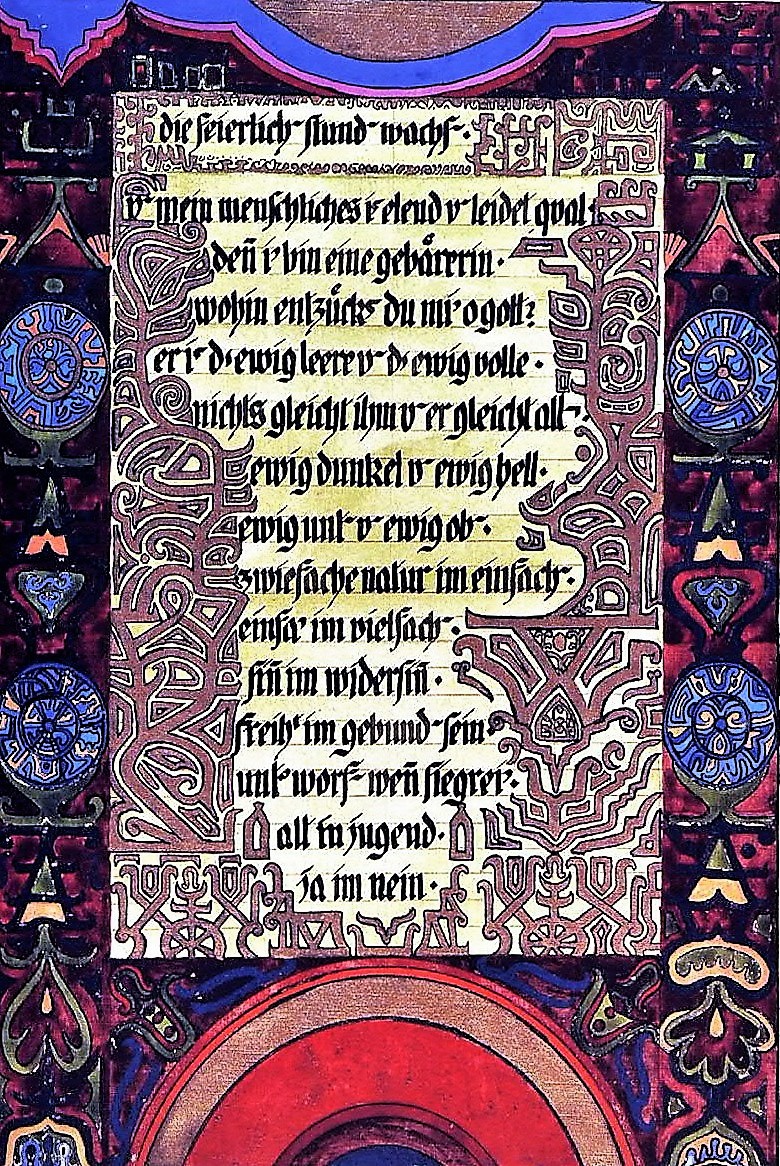 die feierlich stund wachs·
v mein menschliches elend v leidet qual·
deñ i bin eine gebärerin·
wohin entzücks du mi o gott?
er i d ewig leere v d ewig volle·
nichts gleicht ihm v er gleicht all·
ewig dunkel v ewig hell·
ewig unt v ewig ob·
zwiefache natur im einfach·
einfa im vielfach·
siñ im widersiñ·
freih im gebund sein·
unt worf weñ siegrer·
alt in jugend·
ja im nein·